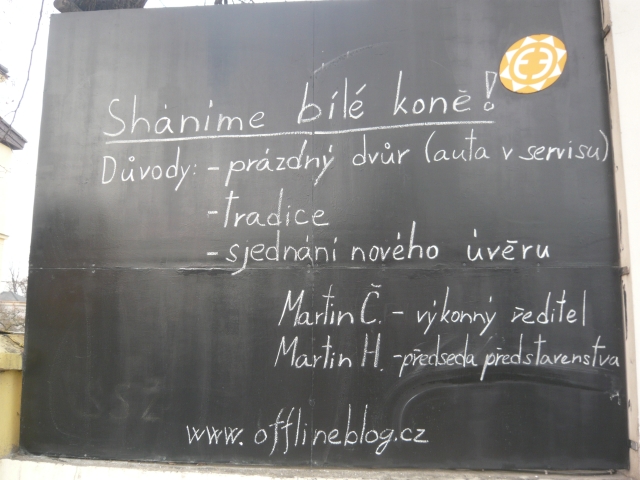 Sháníme bílé koně!
Důvody: - prázdný dvůr (auta v servisu)
- tradice
- sjednání nového úvěru
Martin Č. - výkonný ředitel
Martin H. - předseda představenstva
www.offlineblog.cz